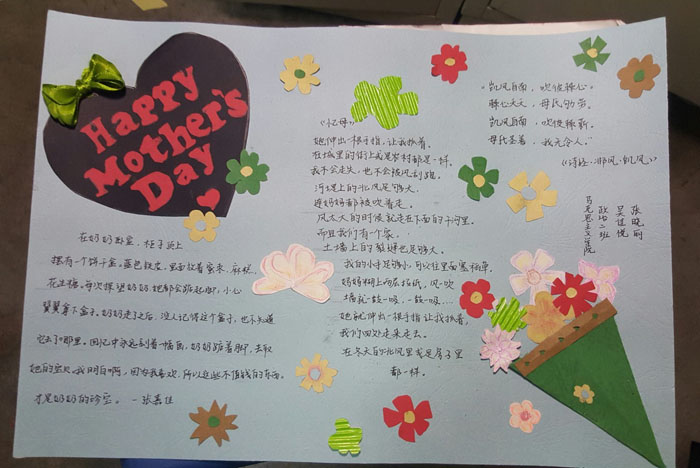 Happy
Mother's
Day
在奶奶卧室，柜子顶上
摆有一个饼干盒。蓝色铁皮，里面放着蜜枣、麻糕、
花生糖。每次探望奶奶，她都会踮起脚，小心
翼翼拿下盒子。奶奶走了之后，没人记得这个盒子，也不知道
它去了哪里。回忆中永远刻着一幅画，奶奶踮着脚，去取
她的宝贝。我明白啊，因为我喜欢，所以这些不值钱的东西，
才是奶奶的珍宝。 —张嘉佳
《忆母》
她伸出一根手指，让我抓着。
在城里的街上或是乡村都是一样。
我不会走失，也不会被风刮跑。
河堤上的北风足够大，
连妈妈都被吹着走。
风太大的时候就走在下面的干河里。
而且我们有个家。
土墙上的裂缝也足够大，
我的小手足够小，可以往里面塞稻草。
妈妈糊上两层报纸，风一吹
墙就一鼓一吸，一鼓一吸……
她就伸出一根手指让我抓着，
我们四处走来走去。
在冬天的北风里或是房子里
都一样。
凯风自南，吹彼棘心。
棘心夭夭，母氏劬劳。
凯风自南，吹彼棘薪。
母氏圣善，我无令人。"
《诗经·邶风·凯风》
张晓丽
政治二班
马克思主义学院